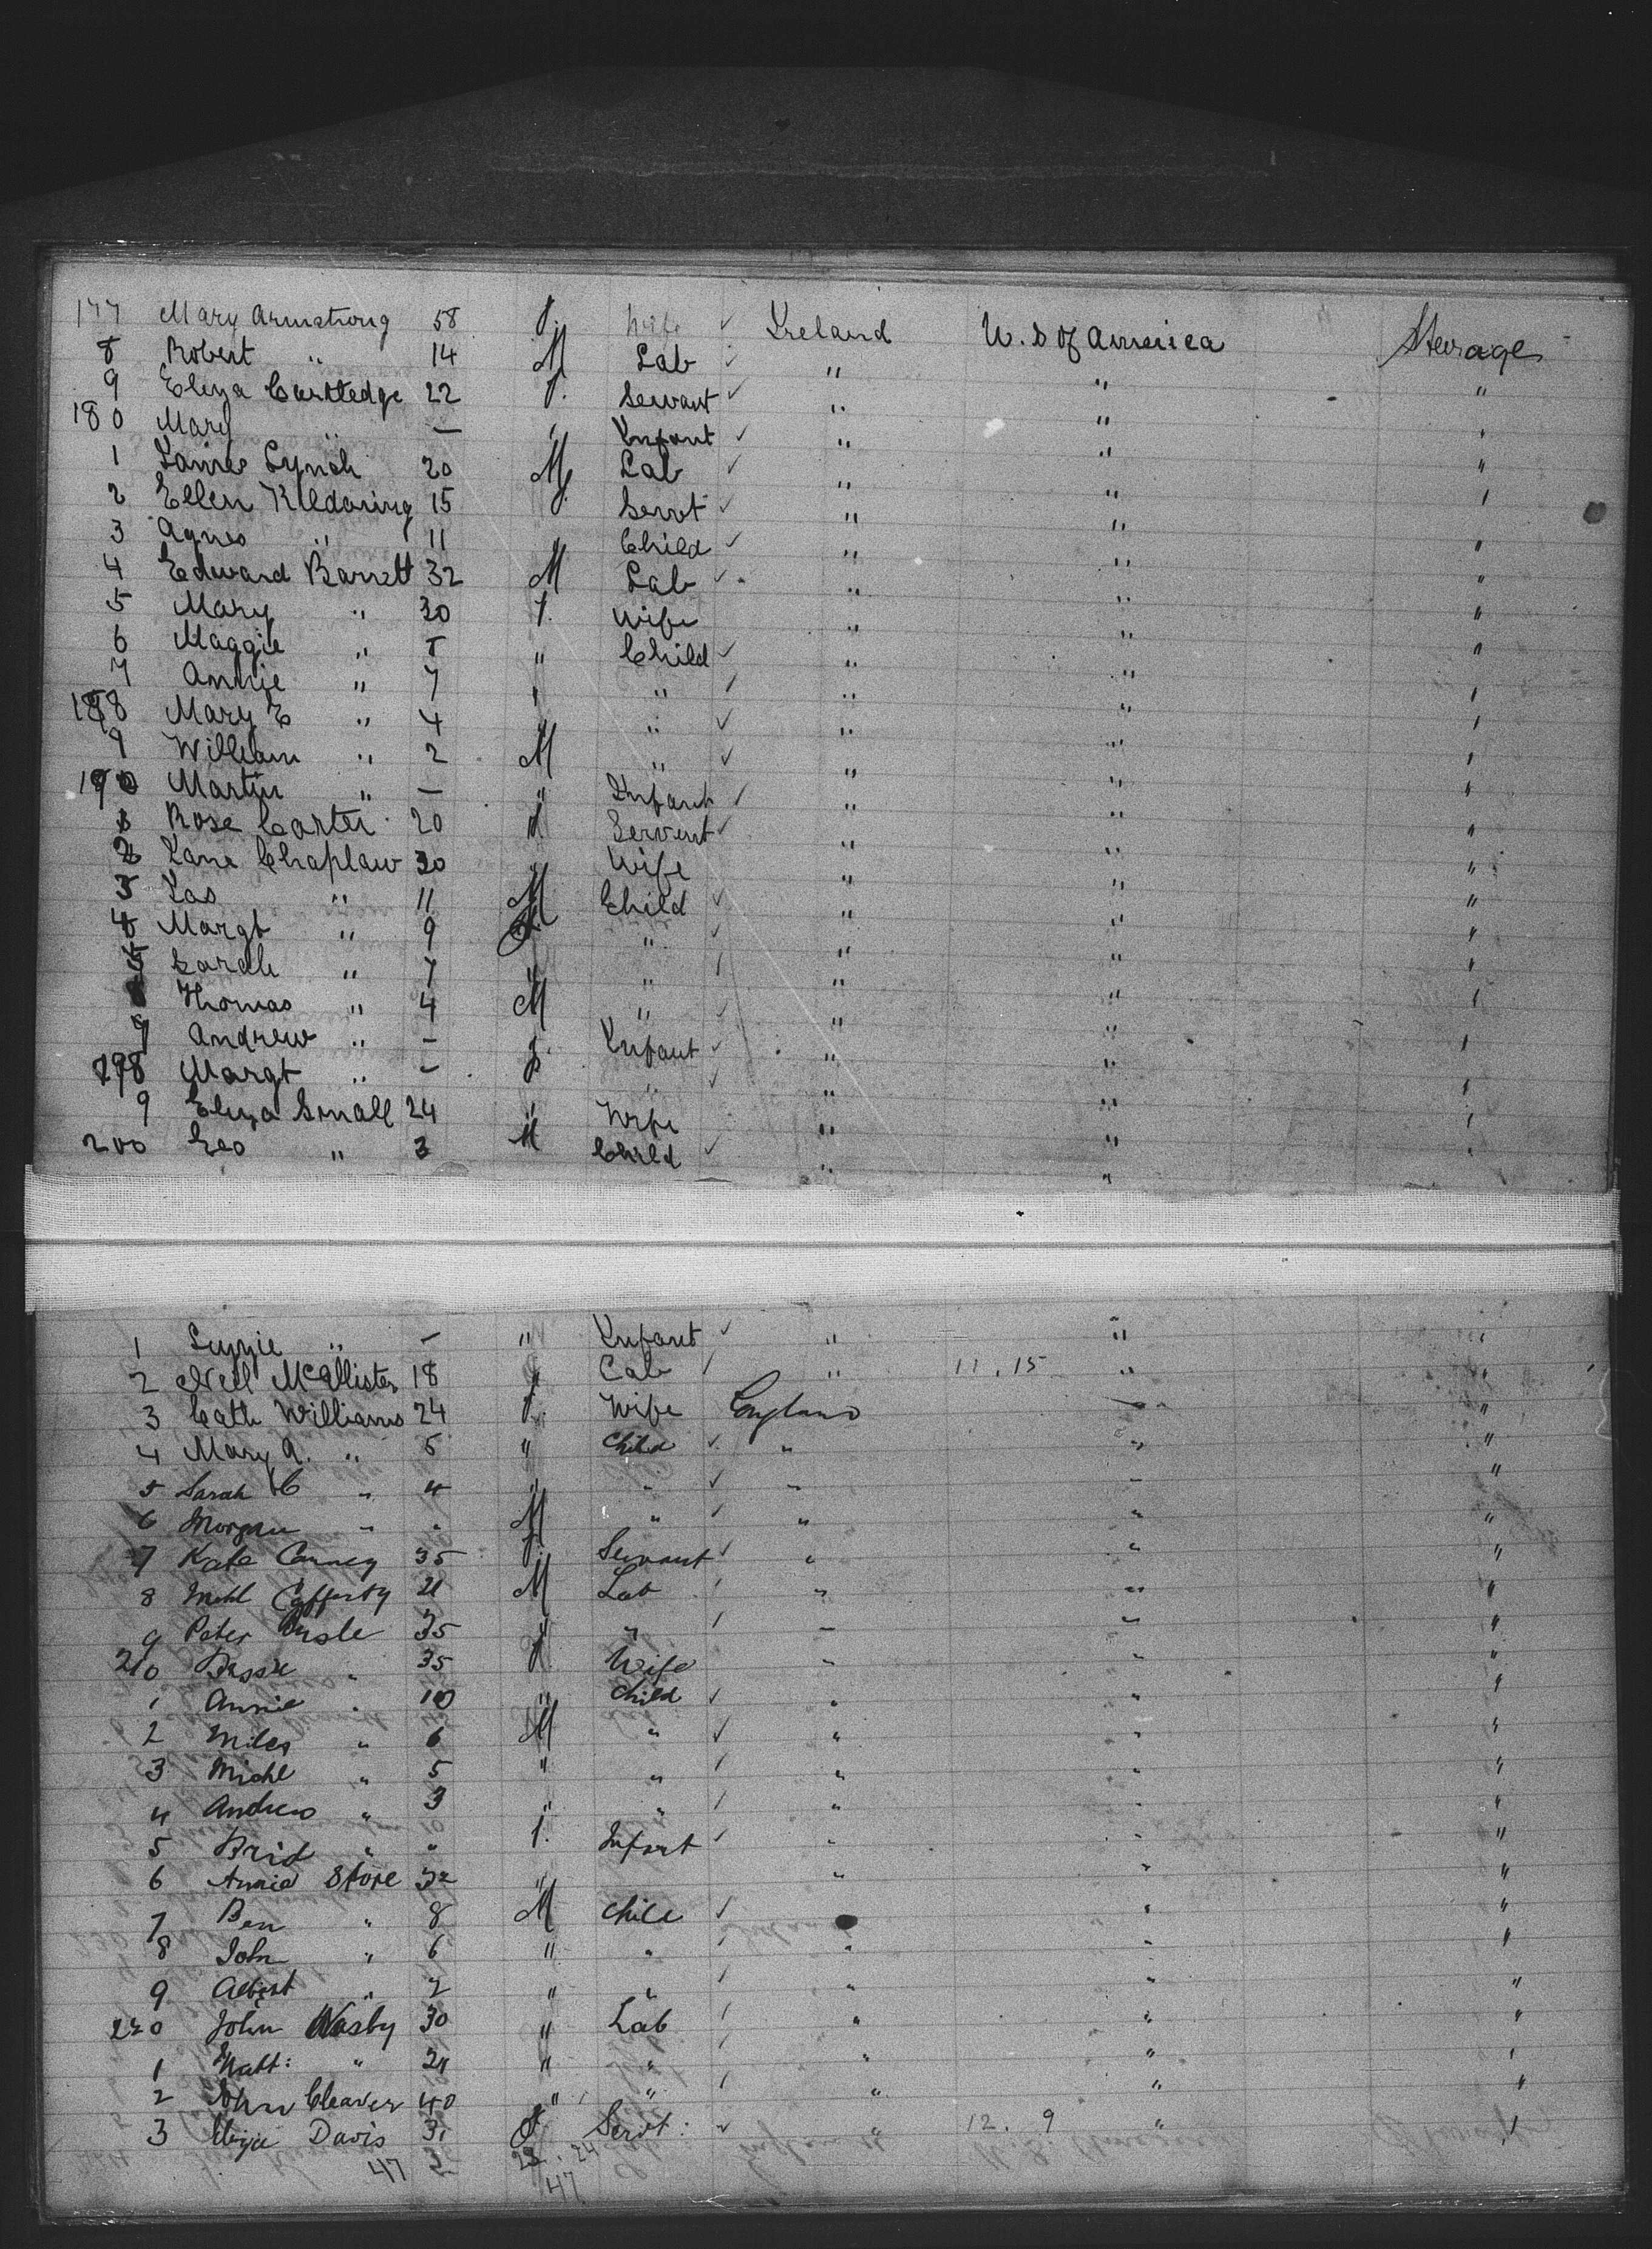 177 Mary Armstrong 58 f. Wife ✓ Ireland U. S of America Steerage
8 Robert " 14 M Lab ✓ " " "
9 Eliza Curttedge 22 f. Servant ✓ " " "
180 Mary " — " Infant ✓ " " "
1 James Lynch 20 M Lab ✓ " " "
2 Ellen Kildaring 15 f. Servt ✓ " " "
3 Agnes " 11 " Child ✓ " " "
4 Edward Barrett 32 M Lab ✓ " " "
5 Mary " 30 f. Wife " " "
6 Maggie " 8 " Child ✓ " " "
7 Annie " 7 " " ✓ " " "
188 Mary E " 4 " " ✓ " " "
9 William " 2 M " ✓ " " "
190 Martin " — " Infant ✓ " " "
1 Rose Carter 20 f Servent ✓ " " "
2 Jane Chaplaw 30 " Wife " " "
3 Jas " 11 M Child ✓ " " "
4 Margt " 9 f. " ✓ " " "
5 Sarah " 7 " " ✓ " " "
Thomas " 4 M " ✓ " " "
7 Andrew " — " Infant ✓ " " "
198 Margt " — f. " ✓ " " "
9 Eliza Small 24 " Wife " " "
200 Geo " 3 M Child ✓ " " "
1 Lizzie " — " Infant ✓ " " "
2 Neil McAllister 18 Lab ✓ " 11.15 " "
3 Cath Williams 24 f. Wife England " "
4 Mary A. " 5 " Child ✓ " " "
5 Sarah C " 4 " " ✓ " " "
6 Morgan " " M " ✓ " " "
7 Kate Conney 35 f. Servant ✓ " " "
8 Michl Cafferty 21 M Lab ✓ " " "
9 Peter 35 " " ✓ " " "
210 Bessie " 35 f Wife " " "
1 Annie " 10 " Child ✓ " " "
2 Miles " 6 M " ✓ " " "
3 Michl " 5 " " ✓ " " "
4 Andrew " 3 " " ✓ " " "
5 Brid " " f. Infant ✓ " " "
6 Annie Stone 32 " " " "
7 Ben " 8 M Child ✓ " "
8 John " 6 " " ✓ " " "
9 Albert " 2 " " ✓ " " "
220 John Wasby 30 " Lab ✓ " " "
1 Matt: " 24 " " ✓ " " "
2 John Cleaver 40 " " ✓ " " "
3 Lizzie Davis 31 f Servt: ✓ " 12. 9 " "
47 23. 24
47